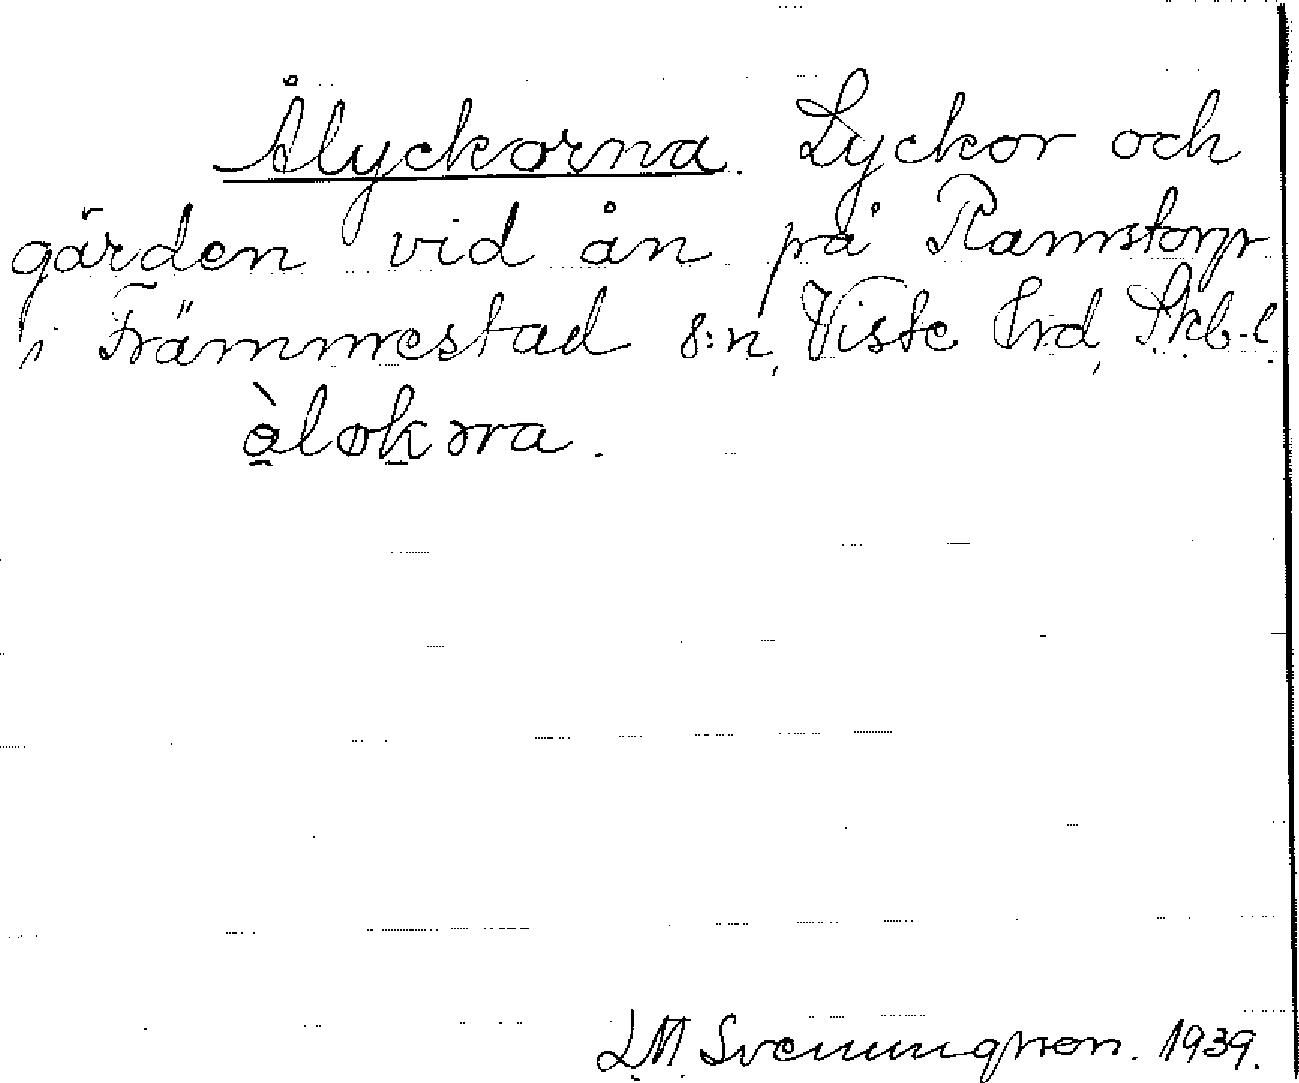 Ålyckorna. Lyckor och
gärden vid ån på Ramstorp
i Främmestad s:n, Viste Hrd, Skb-l.
àlokɔra.
LM. Svenungsson. 1939.